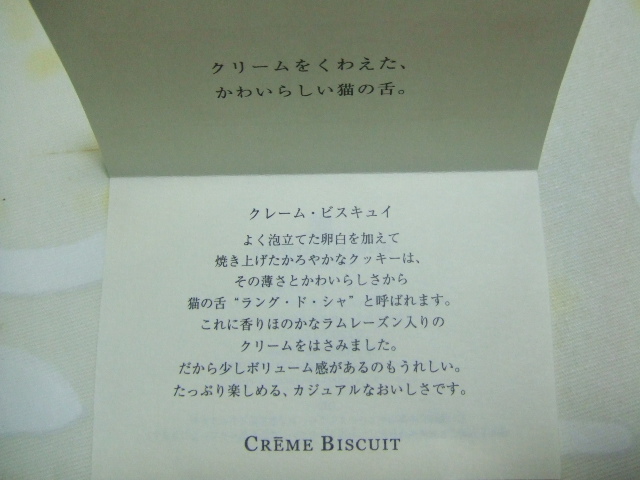 クリームをくわえた、
かわいらしい猫の舌。
クレーム・ビスキュイ
よく泡立てた卵白を加えて
焼き上げたかろやかなクッキーは、
その薄さとかわいらしさから
猫の舌“ラング・ド・シャ”と呼ばれます。
これに香りほのかなラムレーズン入りの
クリームをはさみました。
だから少しボリューム感があるのもうれしい。
たっぷり楽しめる、カジュアルなおいしさです。
CRĒME BISCUIT